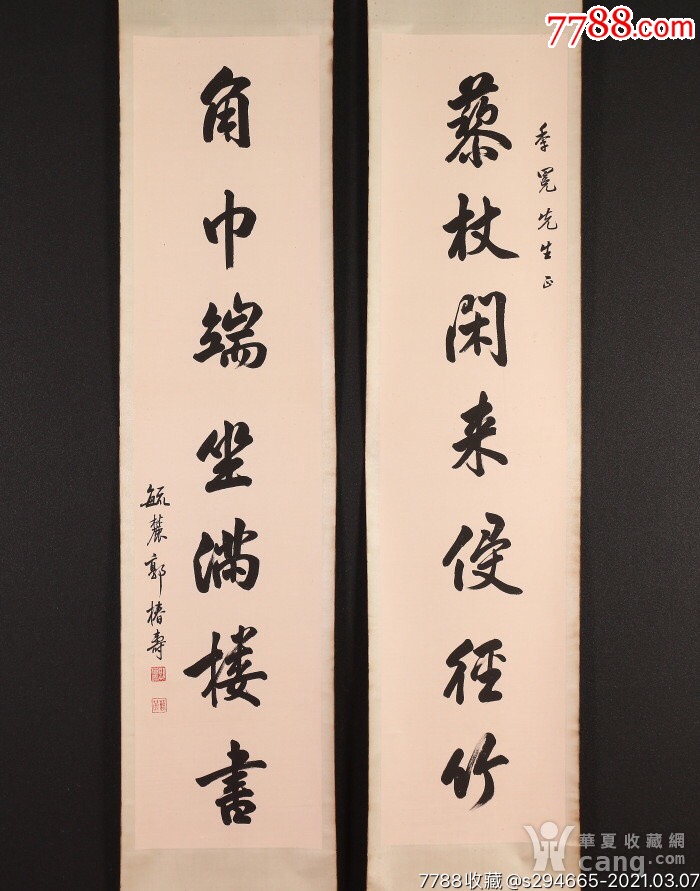 7788.com
季冕先生正
藜杖閑来侵径竹
角巾端坐满楼書
毓麓郭椿壽
華夏收藏網
cang.com
7788收藏 @s294665-2021.03.07